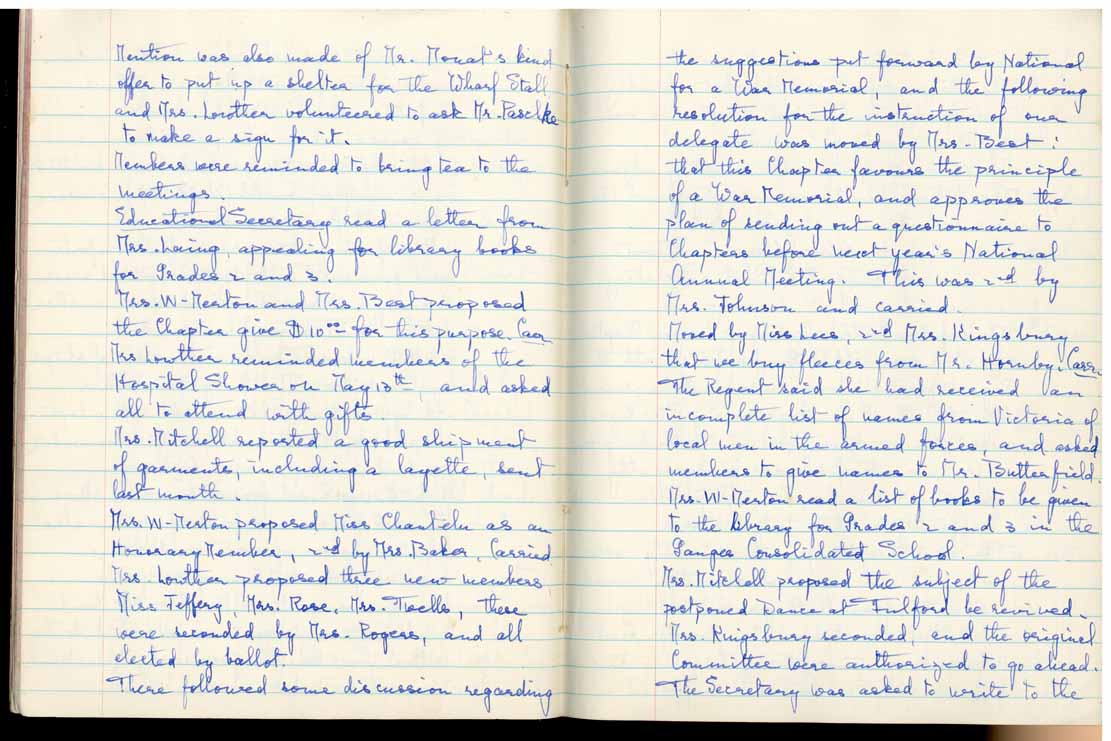 Mention was also made of Mr. Mouat's kind
offer to put up a shelter for the Wharf Stall,
and Mrs. Lowther volunteered to ask Mr. Paschke
to make a sign for it.
Members were reminded to bring tea to the
meetings.
Educational Secretary read a letter from
Mrs. Laing, appealing for library books
for Grades 2 and 3.
Mrs. W-Merton and Mrs. Best proposed
the Chapter give $10.00 for this purpose. Carr
Mrs Lowther reminded members of the
Hospital Shower on May 13th, and asked
all to attend with gifts.
Mrs. Mitchell reported a good shipment
of garments, including a layette, sent
last month.
Mrs. W-Merton proposed Miss Chantelu as an
Honorary Member, 2nd by Mrs. Baker, Carried
Mrs. Lowther proposed three new members
Miss Jeffery, Mrs. Rose, Mrs. Twells, these
were seconded by Mrs. Rogers, and all
elected by ballot.
There followed some discussion regarding
the suggestions put forward by National
for a War Memorial, and the following
resolution for the instruction of our
delegate was moved by Mrs. Best:
that this Chapter favours the principle
of a War Memorial, and approves the
plan of sending out a questionnaire to
Chapters before next year's National
Annual Meeting. This was 2nd by
Mrs. Johnson and carried.
Moved by Miss Lees, 2nd Mrs. Kingsbury
that we buy fleeces from Mr. Hornby. Carr.
The Regent said she had received an
incomplete list of names from Victoria of
local men in the armed forces, and asked
members to give names to Mr. Butterfield.
Mrs. W-Merton read a list of books to be given
to the library for Grades 2 and 3 in the
Ganges Consolidated School.
Mrs. Mitchell proposed the subject of the
postponed Dance at Fulford be revived.
Mrs. Kingsbury seconded, and the original
Committee were authorized to go ahead.
The Secretary was asked to write to the